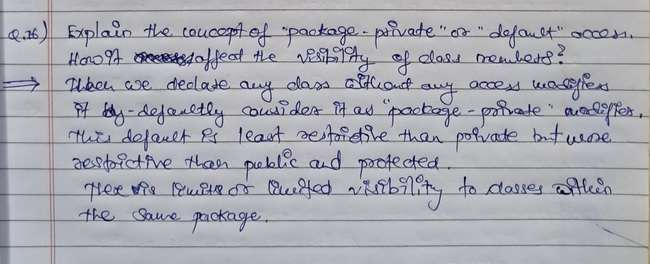 Q.76) Explain the concept of "package-private" or "default" access.
How it affect the visibility of class members?
⇒ When we declare any class without any access modifiers
it by-defaultly consider it as "package-private" modifier.
This default is least restrictive than private but more
restrictive than public and protected.
limits or limited visibility to classes within
the same package.